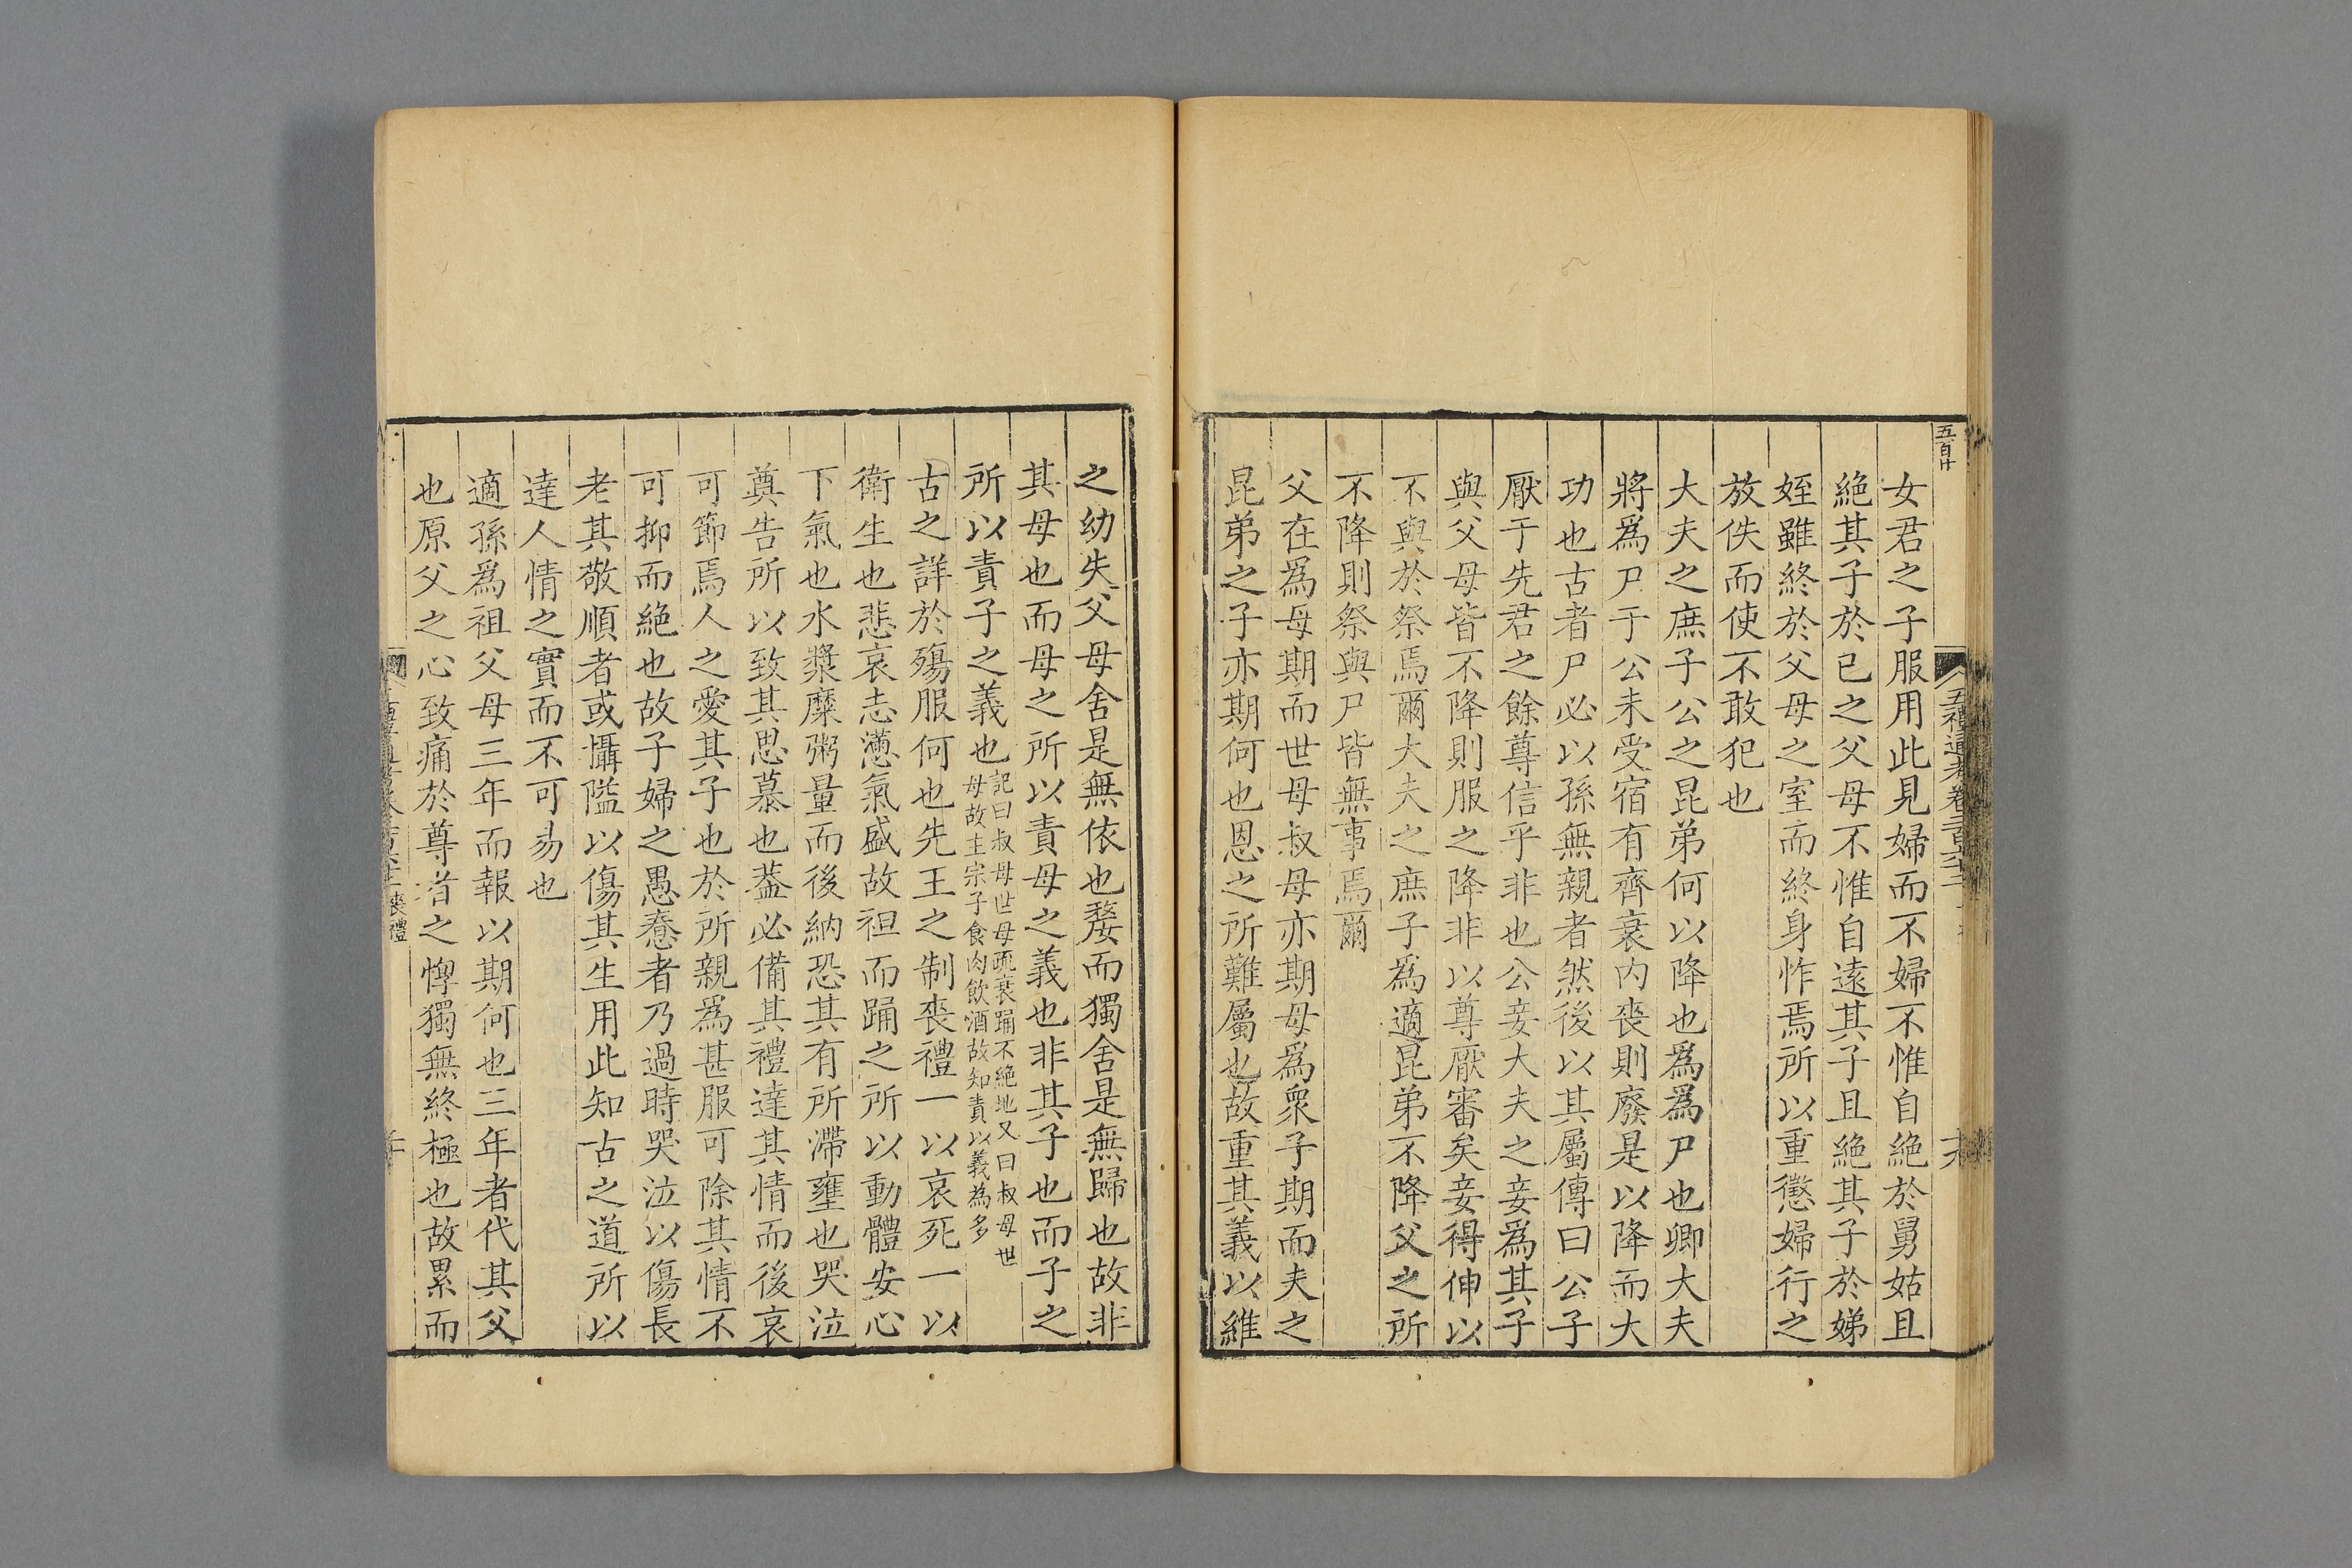 五百十
女君之子服用此見婦而不婦不惟自絕於舅姑且
絕其子於已之父母不惟自遠其子且絕其子於娣
姪雖終於父母之室而終身怍焉所以重懲婦行之
放佚而使不敢犯也
大夫之庶子公之昆弟何以降也爲爲尸也卿大夫
將爲尸于公未受宿有齊衰内喪則廢是以降而大
功也古者尸必以孫無親者然後以其屬傳曰公子
厭于先君之餘尊信乎非也公妾大夫之妾爲其子
與父母皆不降則服之降非以尊厭審矣妾得伸以
不與於祭焉爾大夫之庶子爲適昆弟不降父之所
不降則祭與尸皆無事焉爾
父在爲母期而世母叔母亦期母爲衆子期而夫之
昆弟之子亦期何也恩之所難屬也故重其義以維
之幼失父母舍是無依也嫠而獨舍是無歸也故非
其母也而母之所以責母之義也非其子也而子之
所以責子之義也記曰叔母世母疏衰踊不絕地又曰叔母世
母故主宗子食肉飲酒故知責以義為多
古之詳於殤服何也先王之制喪禮一以哀死一以
衛生也悲哀志懣氣盛故袒而踊之所以動體安心
下氣也水漿糜粥量而後納恐其有所滯壅也哭泣
奠告所以致其思慕也葢必備其禮達其情而後哀
可節焉人之愛其子也於所親爲甚服可除其情不
可抑而絕也故子婦之愚惷者乃過時哭泣以傷長
老其敬順者或懾隘以傷其生用此知古之道所以
達人情之實而不可易也
適孫爲祖父母三年而報以期何也三年者代其父
也原父之心致痛於尊者之惸獨無終極也故累而